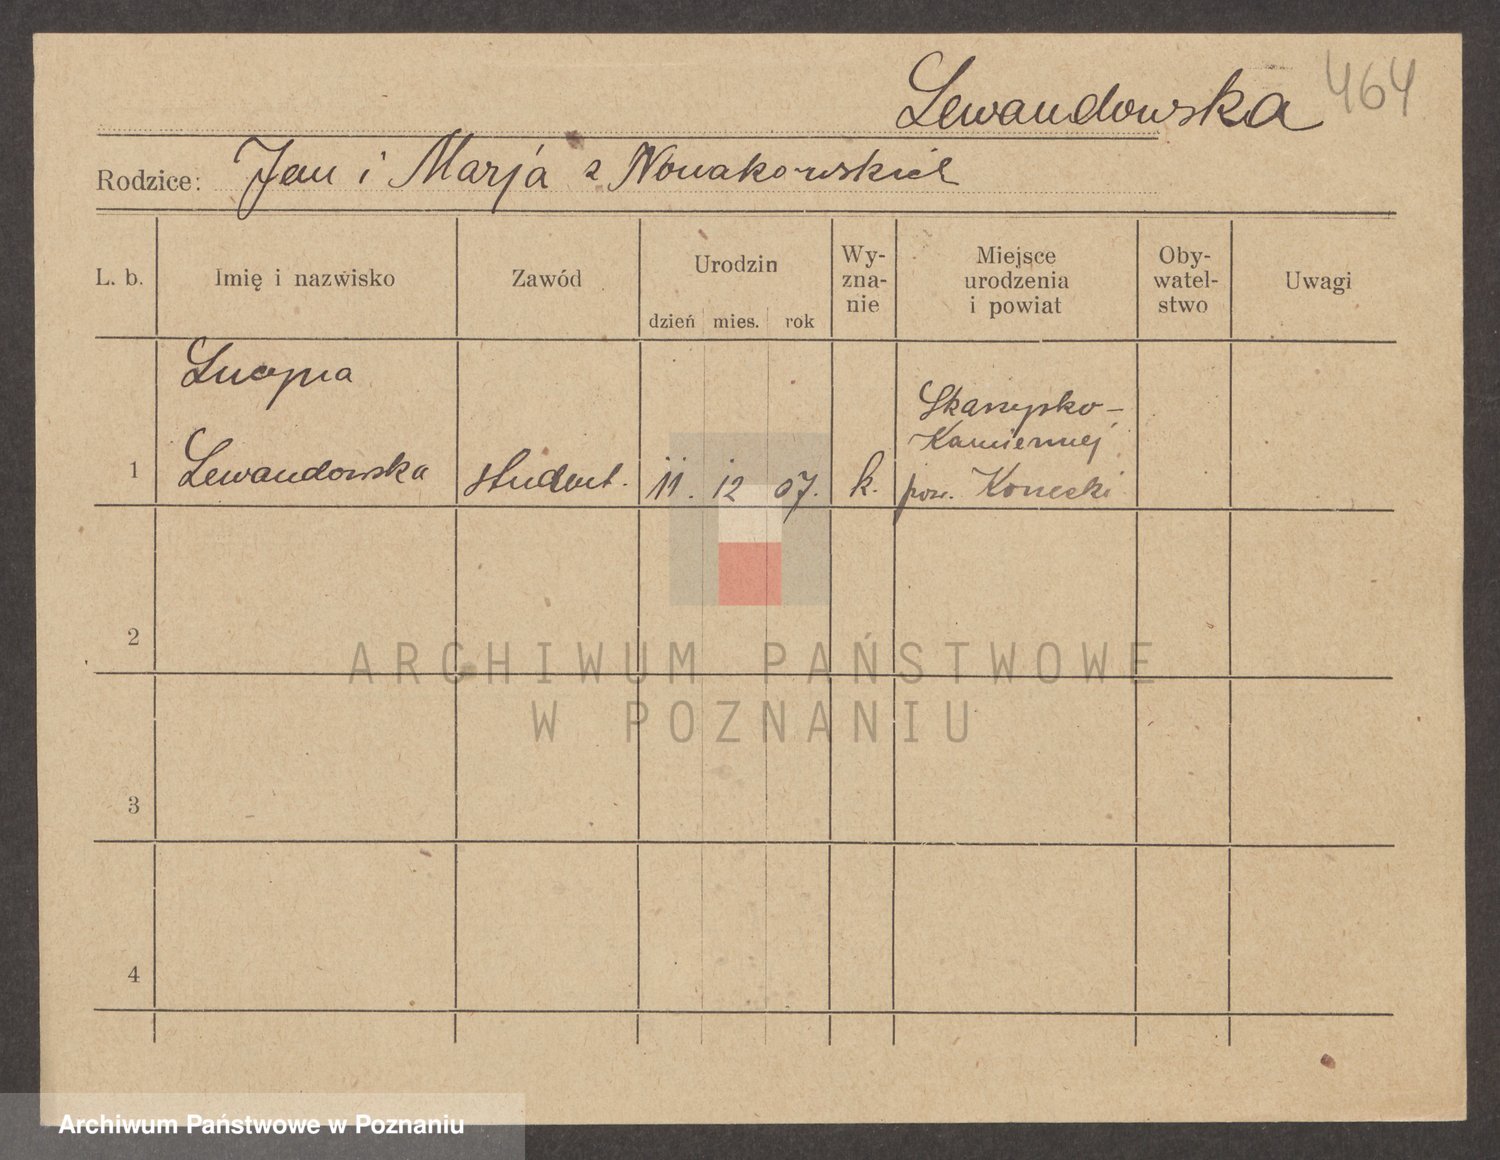 Lewandowska 464
Rodzice: Jan i Marja z Nowakowskich
L. b. Imię i nazwisko Zawód Urodzin dzień mies. rok Wy-zna-nie Miejsce urodzenia i powiat Oby-watel-stwo Uwagi
Lucyna
Skarzysko-
Kamiennej
1 Lewandowska student. 11. 12 07. k. pow. Konecki
2
ARCHIWUM PAŃSTWOWE
W POZNANIU
3
4
Archiwum Państwowe w Poznaniu